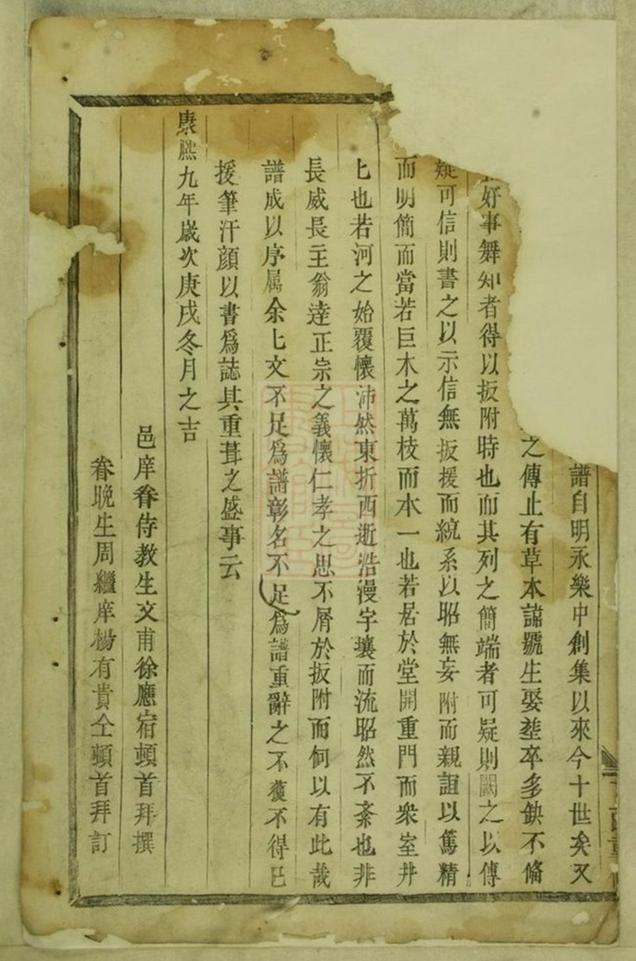 譜自明永樂中創集以來今十世矣又
之傳止有草本諱號生娶塟卒多缺不俻
好事舞知者得以扳附時也而其列之簡端者可疑則闕之以傳
疑可信則書之以示信無扳援而統系以昭無妄附而親詛以篤精
而明簡而當若巨木之萬枝而本一也若居於堂開重門而衆室井
匕也若河之始覆懷沛然東折西逝浩漫宇壤而流昭然不紊也非
長威長主翁逹正宗之義懷仁孝之思不屑於扳附而何以有此哉
譜成以序属余匕文不足爲譜彰名不足爲譜重辭之不獲不得已
援筆汗顔以書爲誌其重葺之盛事云
康熈九年嵗次庚戌冬月之吉
邑庠眷侍教生文甫徐應宿頓首拜撰
眷晚生周繼庠楊有貴仝頓首拜訂